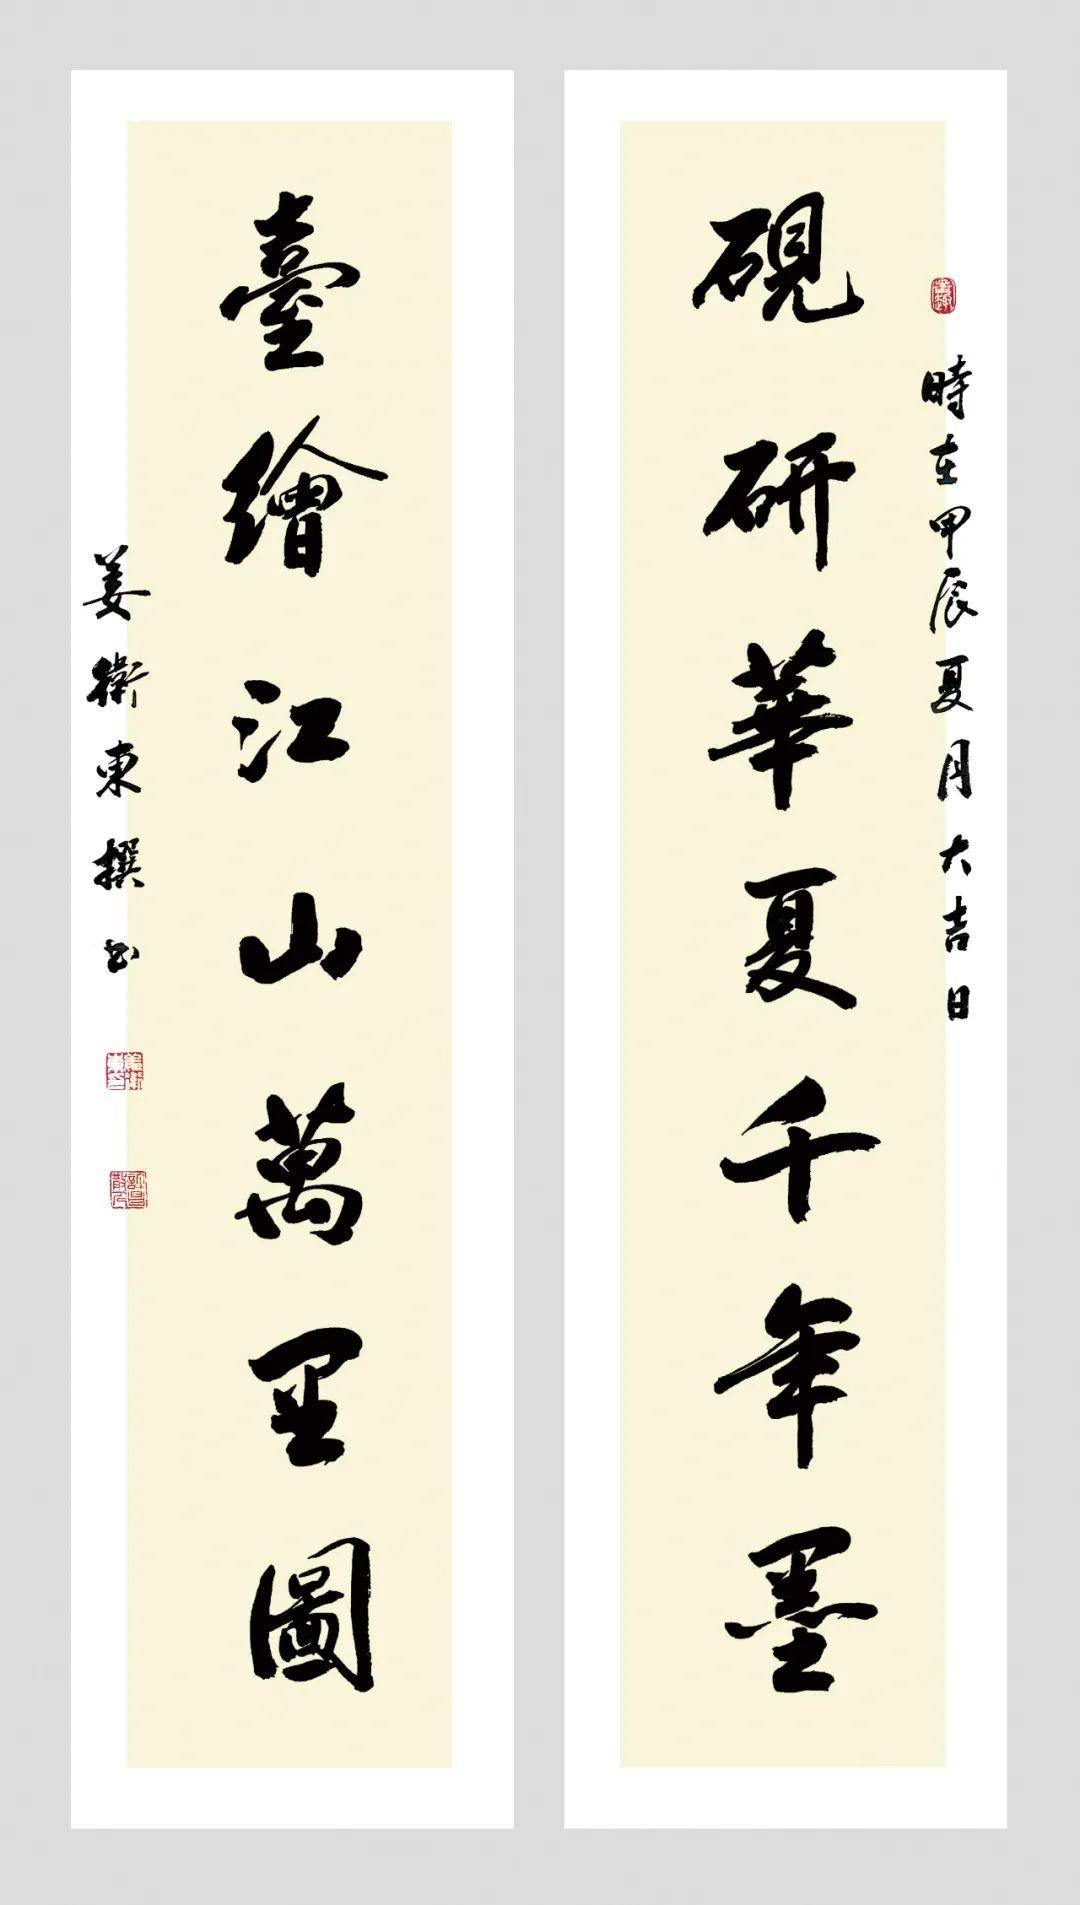 硯研華夏千年墨
時在甲辰夏月大吉日
臺繪江山萬里圖
姜衛東撰书